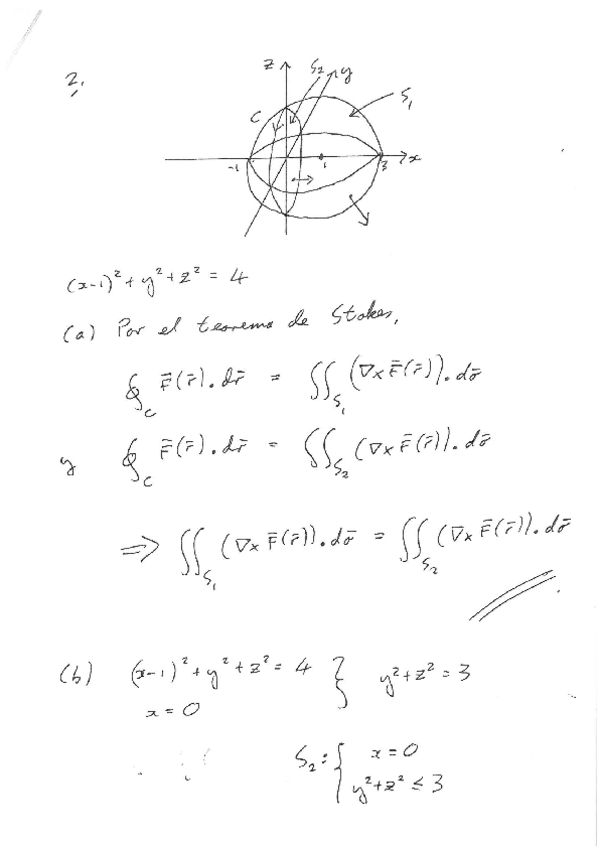 2.
z S₂ y
C S₁
-1 1 3 x
(x-1)² + y² + z² = 4
(a) Por el teorema de Stokes,
∮_C F̄(r̄). dr̄ = ∬_S₁ (∇×F̄(r̄)). dσ̄
y ∮_C F̄(r̄). dr̄ = ∬_S₂ (∇×F̄(r̄)). dσ̄
⇒ ∬_S₁ (∇×F̄(r̄)). dσ̄ = ∬_S₂ (∇×F̄(r̄)). dσ̄
(b) (x-1)² + y² + z² = 4 } y² + z² = 3
x = 0
S₂: { x = 0
y² + z² ≤ 3